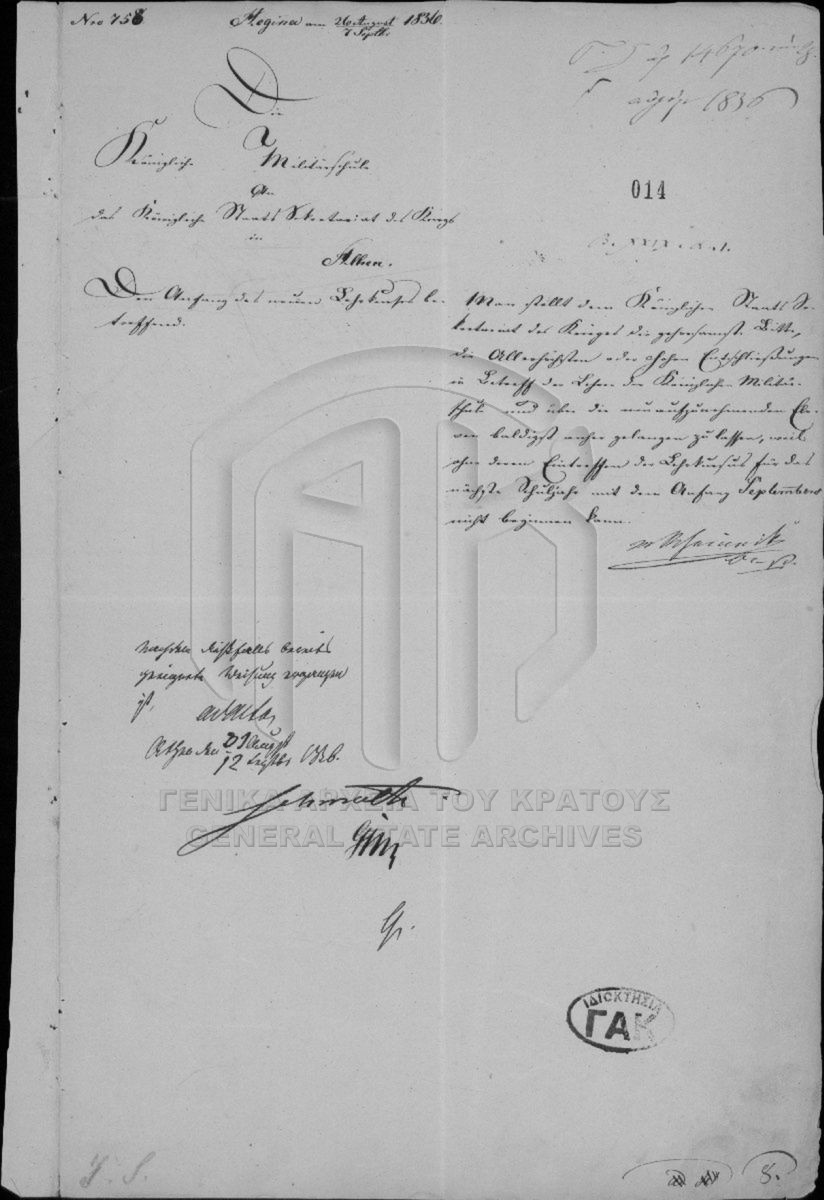 Nro 758
Aegina am 26 August / 7 Septbr 1836
14670
1836
Die
Königliche Militärschule
An
das Königliche Staats Sekretariat des Kriegs
in
Athen.
014
Den Anfang des neuen Lehrkurses be-
treffend.
Man stellt dem Königlichen Staats Se-
kretariat des Krieges die gehorsamste Bitte,
die Allerhöchsten oder hohen Entschließungen
in Betreff der Lehrer der Königlichen Militär-
schule und über die neu aufzunehmenden Ele-
ven baldigst anher gelangen zu lassen, weil
ohne deren Eintreffen der Lehrkursus für das
nächste Schuljahr mit dem Anfang Septembers
nicht beginnen kann.
bereits
geeignete Weisung ergangen
ist,
ad acta,
Athen den 31 August / 12 Septbr 1836.
ΓΕΝΙΚΑ ΑΡΧΕΙΑ ΤΟΥ ΚΡΑΤΟΥΣ
GENERAL STATE ARCHIVES
ΙΔΙΟΚΤΗΣΙΑ
ΓΑΚ
8.